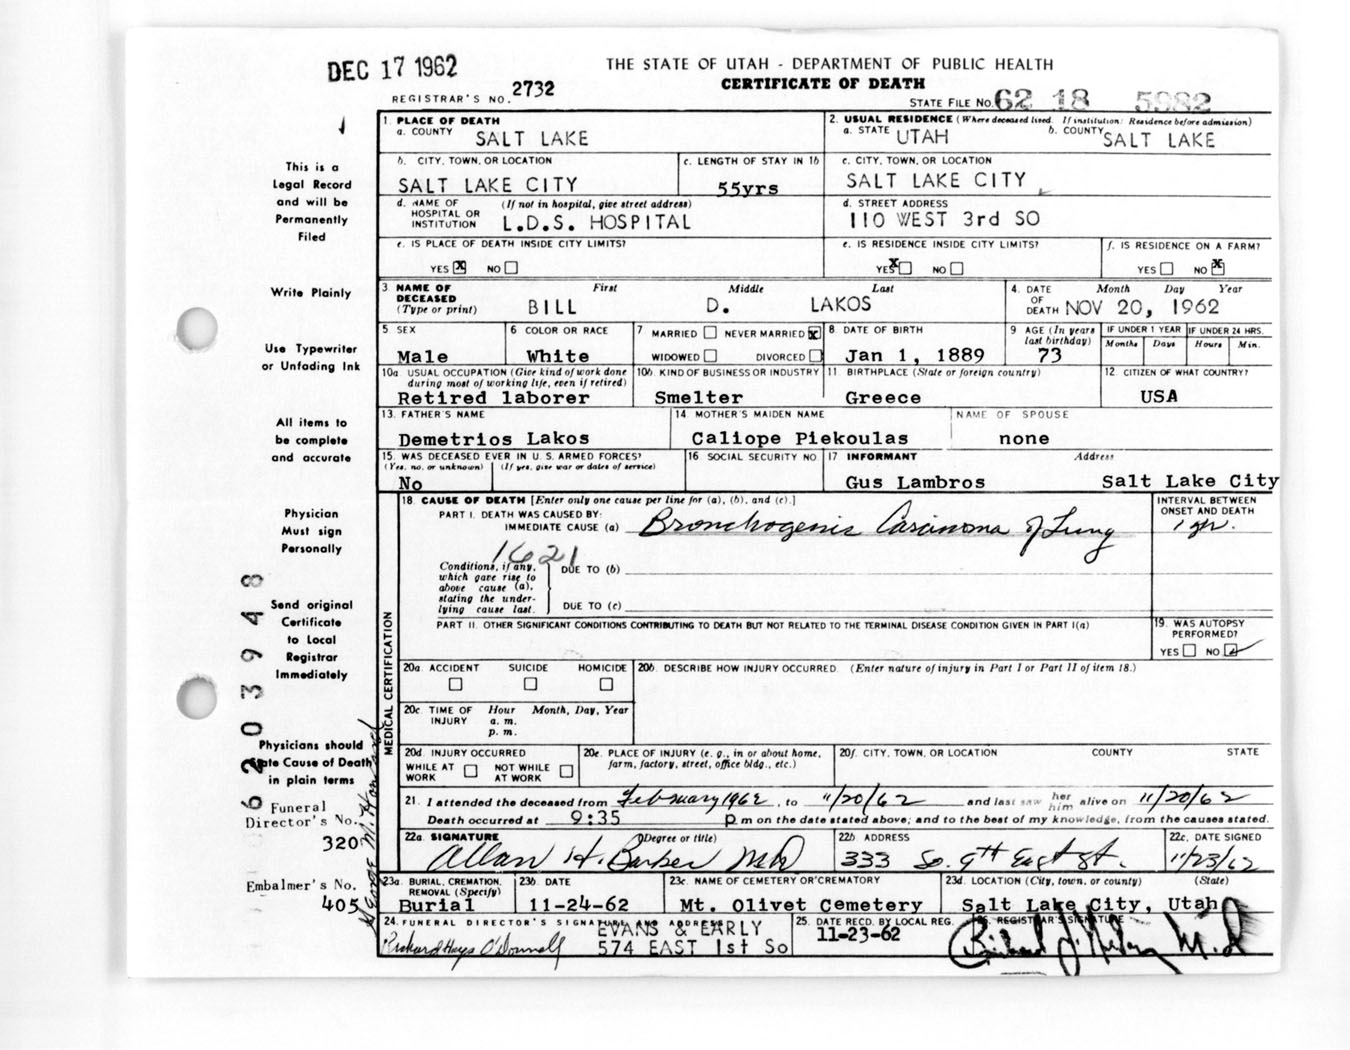 DEC 17 1962
THE STATE OF UTAH - DEPARTMENT OF PUBLIC HEALTH
CERTIFICATE OF DEATH
REGISTRAR'S NO. 2732
STATE FILE NO. 62 18 5982
1. PLACE OF DEATH
a. COUNTY SALT LAKE
2. USUAL RESIDENCE (Where deceased lived. If institution: Residence before admission)
a. STATE UTAH b. COUNTY SALT LAKE
b. CITY, TOWN, OR LOCATION SALT LAKE CITY
c. LENGTH OF STAY IN 1b 55yrs
c. CITY, TOWN, OR LOCATION SALT LAKE CITY
d. NAME OF HOSPITAL OR INSTITUTION (If not in hospital, give street address) L.D.S. HOSPITAL
d. STREET ADDRESS 110 WEST 3rd SO
e. IS PLACE OF DEATH INSIDE CITY LIMITS?
YES X NO
e. IS RESIDENCE INSIDE CITY LIMITS?
YES X NO
f. IS RESIDENCE ON A FARM?
YES NO X
3 NAME OF DECEASED (Type or print) First Middle Last
BILL D. LAKOS
4. DATE OF DEATH Month Day Year
NOV 20, 1962
5 SEX Male
6 COLOR OR RACE White
7 MARRIED NEVER MARRIED X
WIDOWED DIVORCED
8 DATE OF BIRTH Jan 1, 1889
9 AGE (In years last birthday) 73
IF UNDER 1 YEAR Months Days
IF UNDER 24 HRS. Hours Min.
10a. USUAL OCCUPATION (Give kind of work done during most of working life, even if retired)
Retired laborer
10b. KIND OF BUSINESS OR INDUSTRY Smelter
11 BIRTHPLACE (State or foreign country) Greece
12 CITIZEN OF WHAT COUNTRY? USA
13. FATHER'S NAME Demetrios Lakos
14 MOTHER'S MAIDEN NAME Caliope Piekoulas
NAME OF SPOUSE none
15. WAS DECEASED EVER IN U. S. ARMED FORCES?
(Yes, no, or unknown) (If yes, give war or dates of service)
No
16 SOCIAL SECURITY NO
17 INFORMANT Address
Gus Lambros Salt Lake City
18. CAUSE OF DEATH [Enter only one cause per line for (a), (b), and (c).]
PART I. DEATH WAS CAUSED BY:
IMMEDIATE CAUSE (a) Bronchogenic Carcinoma of Lung
INTERVAL BETWEEN ONSET AND DEATH
1 yr.
1621
Conditions, if any, which gave rise to above cause (a), stating the underlying cause last.
DUE TO (b)
DUE TO (c)
PART II. OTHER SIGNIFICANT CONDITIONS CONTRIBUTING TO DEATH BUT NOT RELATED TO THE TERMINAL DISEASE CONDITION GIVEN IN PART I(a)
19. WAS AUTOPSY PERFORMED?
YES NO
20a. ACCIDENT SUICIDE HOMICIDE
20b. DESCRIBE HOW INJURY OCCURRED. (Enter nature of injury in Part I or Part II of item 18.)
20c. TIME OF INJURY Hour a. m. p. m. Month, Day, Year
20d. INJURY OCCURRED
WHILE AT WORK NOT WHILE AT WORK
20e. PLACE OF INJURY (e. g., in or about home, farm, factory, street, office bldg., etc.)
20f. CITY, TOWN, OR LOCATION COUNTY STATE
21. I attended the deceased from February 1962, to 11/20/62 and last saw her him alive on 11/20/62
Death occurred at 9:35 p m on the date stated above; and to the best of my knowledge, from the causes stated.
22a. SIGNATURE (Degree or title)
Allan H. Barker M.D
22b. ADDRESS
333 So. 9th East St.
22c. DATE SIGNED
11/23/62
23a. BURIAL, CREMATION, REMOVAL (Specify) Burial
23b. DATE 11-24-62
23c. NAME OF CEMETERY OR CREMATORY Mt. Olivet Cemetery
23d. LOCATION (City, town, or county) (State)
Salt Lake City, Utah
24. FUNERAL DIRECTOR'S SIGNATURE AND ADDRESS
Richard Hays O'Donnell
EVANS & EARLY
574 EAST 1st So
25. DATE RECD. BY LOCAL REG.
11-23-62
26. REGISTRAR'S SIGNATURE
MEDICAL CERTIFICATION
This is a
Legal Record
and will be
Permanently
Filed
Write Plainly
Use Typewriter
or Unfading Ink
All items to
be complete
and accurate
Physician
Must sign
Personally
Send original
Certificate
to Local
Registrar
Immediately
Physicians should
State Cause of Death
in plain terms
Funeral
Director's No.
320
Embalmer's No.
405
62 03948